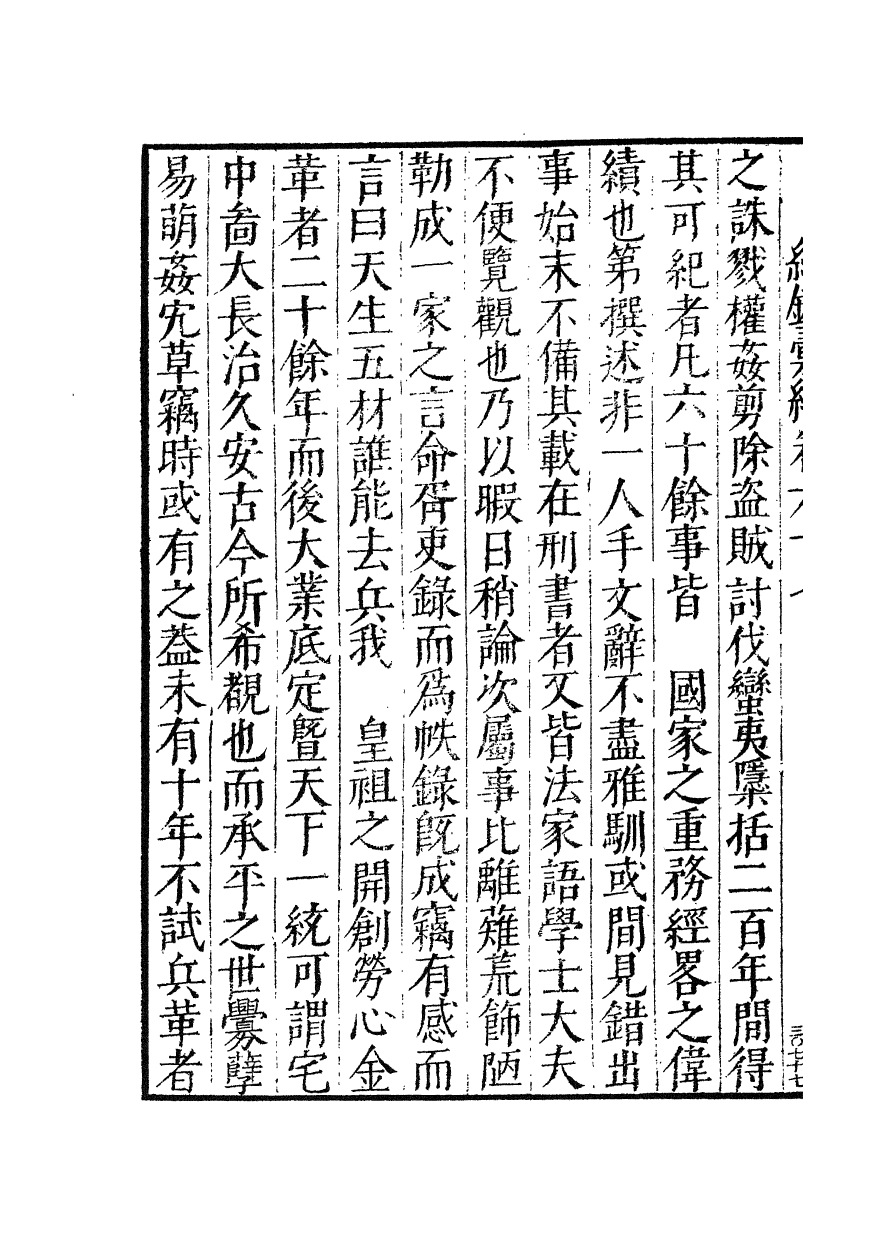 之誅戮權姦剪除盜賊討伐蠻夷隱括二百年間得
其可紀者凡六十餘事皆　國家之重務經畧之偉
績也第撰述非一人手文辭不盡雅馴或間見錯出
事始末不備其載在刑書者又皆法家語學士大夫
不便覽觀也乃以暇日稍論次屬事比離薙荒飾陋
勒成一家之言命胥吏錄而爲帙錄旣成竊有感而
言曰天生五材誰能去兵我　皇祖之開創勞心金
革者二十餘年而後大業底定曁天下一統可謂宅
中啚大長治久安古今所希覩也而承平之世釁孽
易萌姦宄草竊時或有之葢未有十年不試兵革者